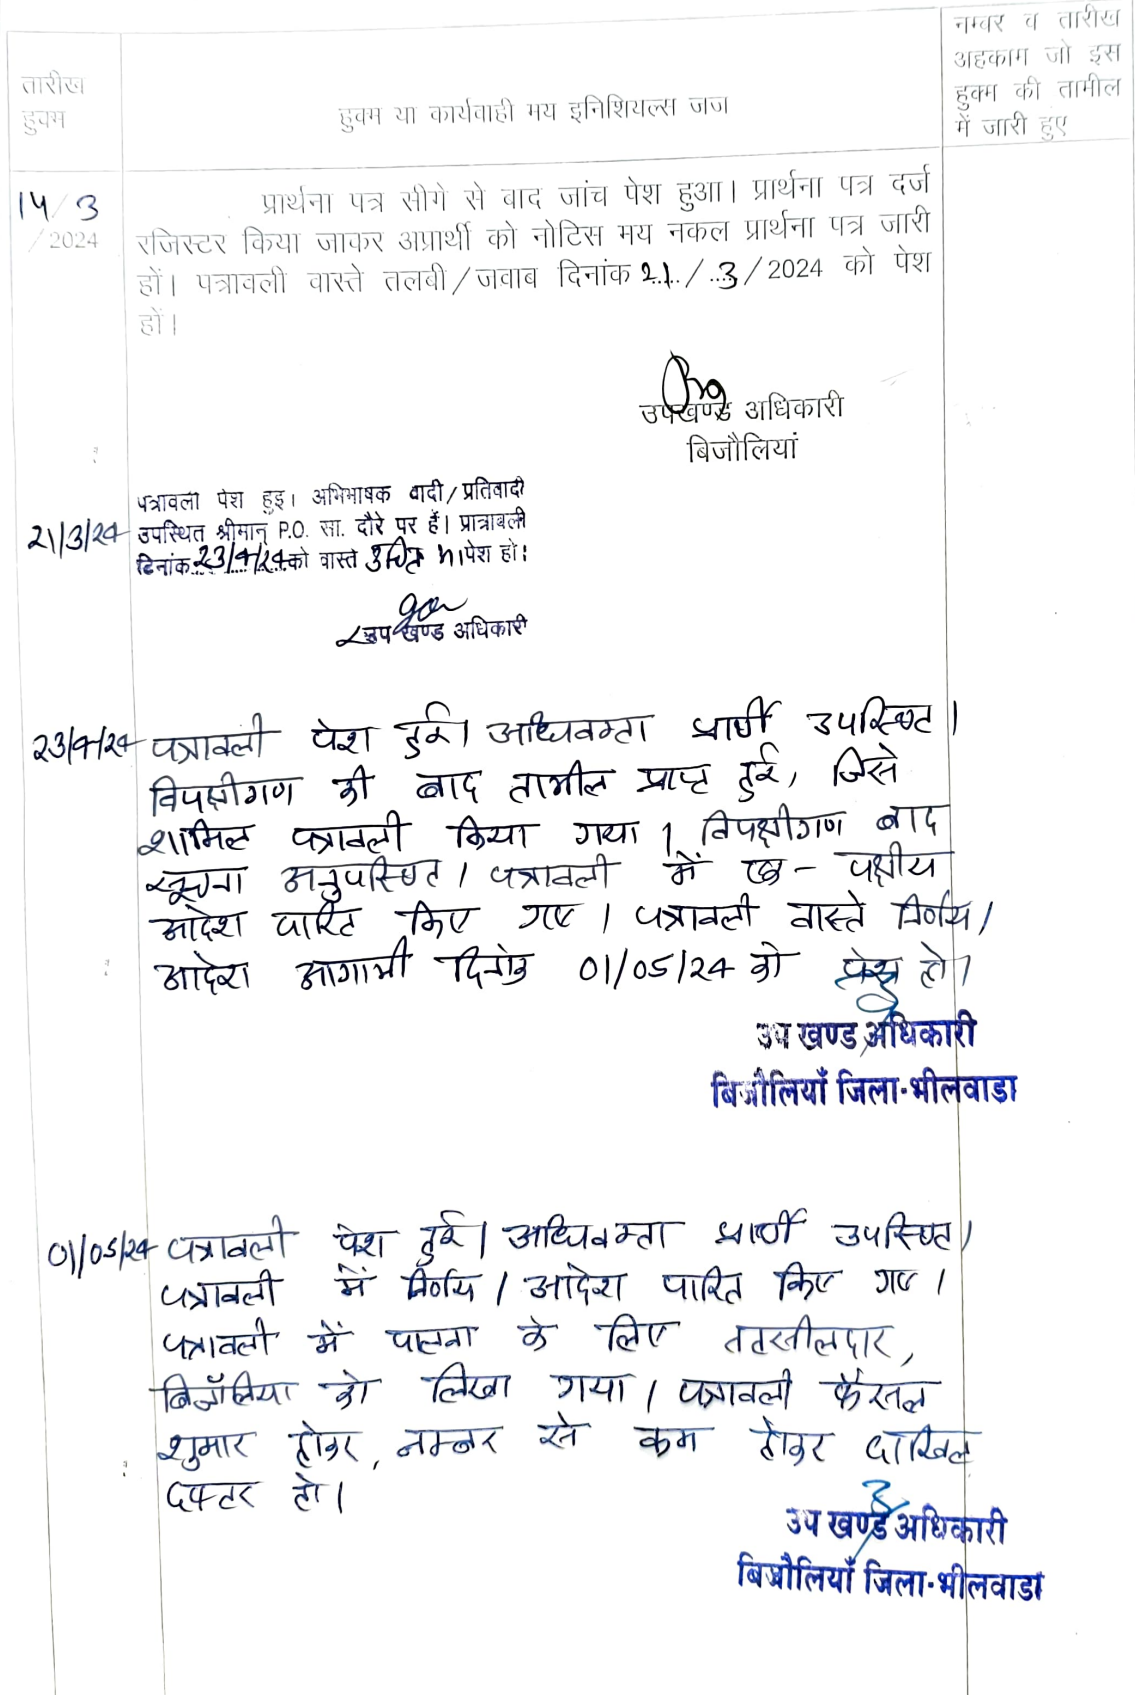 तारीख
हुक्म
हुक्म या कार्यवाही मय इनिशियल्स जज
नम्वर व तारीख
अहकाम जो इस
हुक्म की तामील
में जारी हुए
14/3
/2024
प्रार्थना पत्र सीगे से बाद जांच पेश हुआ। प्रार्थना पत्र दर्ज
रजिस्टर किया जाकर अप्रार्थी को नोटिस मय नकल प्रार्थना पत्र जारी
हों। पत्रावली वास्ते तलबी/जवाब दिनांक 21/3/2024 को पेश
हों।
उपखण्ड अधिकारी
बिजौलियां
21/3/24
पत्रावली पेश हुइ। अभिभाषक वादी/प्रतिवादी
उपस्थित श्रीमान् P.O. सा. दौरे पर हैं। प्रात्रावली
दिनांक 23/4/24 को वास्ते उचित पेश हो।
उप खण्ड अधिकारी
23/4/24 पत्रावली पेश हुई। अधिवक्ता प्रार्थी उपस्थित।
विपक्षीगण की बाद तामील प्राप्त हुई, जिसे
शामिल पत्रावली किया गया। विपक्षीगण बाद
सूचना अनुपस्थित। पत्रावली में एक-पक्षीय
आदेश पारित किए गए। पत्रावली वास्ते निर्णय/
आदेश आगामी दिनांक 01/05/24 को पेश हो।
उप खण्ड अधिकारी
बिजौलियाँ जिला-भीलवाडा
01/05/24 पत्रावली पेश हुई। अधिवक्ता प्रार्थी उपस्थित।
पत्रावली में निर्णय/आदेश पारित किए गए।
पत्रावली में पालना के लिए तहसीलदार,
बिजौलिया को लिखा गया। पत्रावली फैसल
शुमार होकर, नम्बर से कम होकर दाखिल
दफ्तर हो।
उप खण्ड अधिकारी
बिजौलियाँ जिला-भीलवाडा